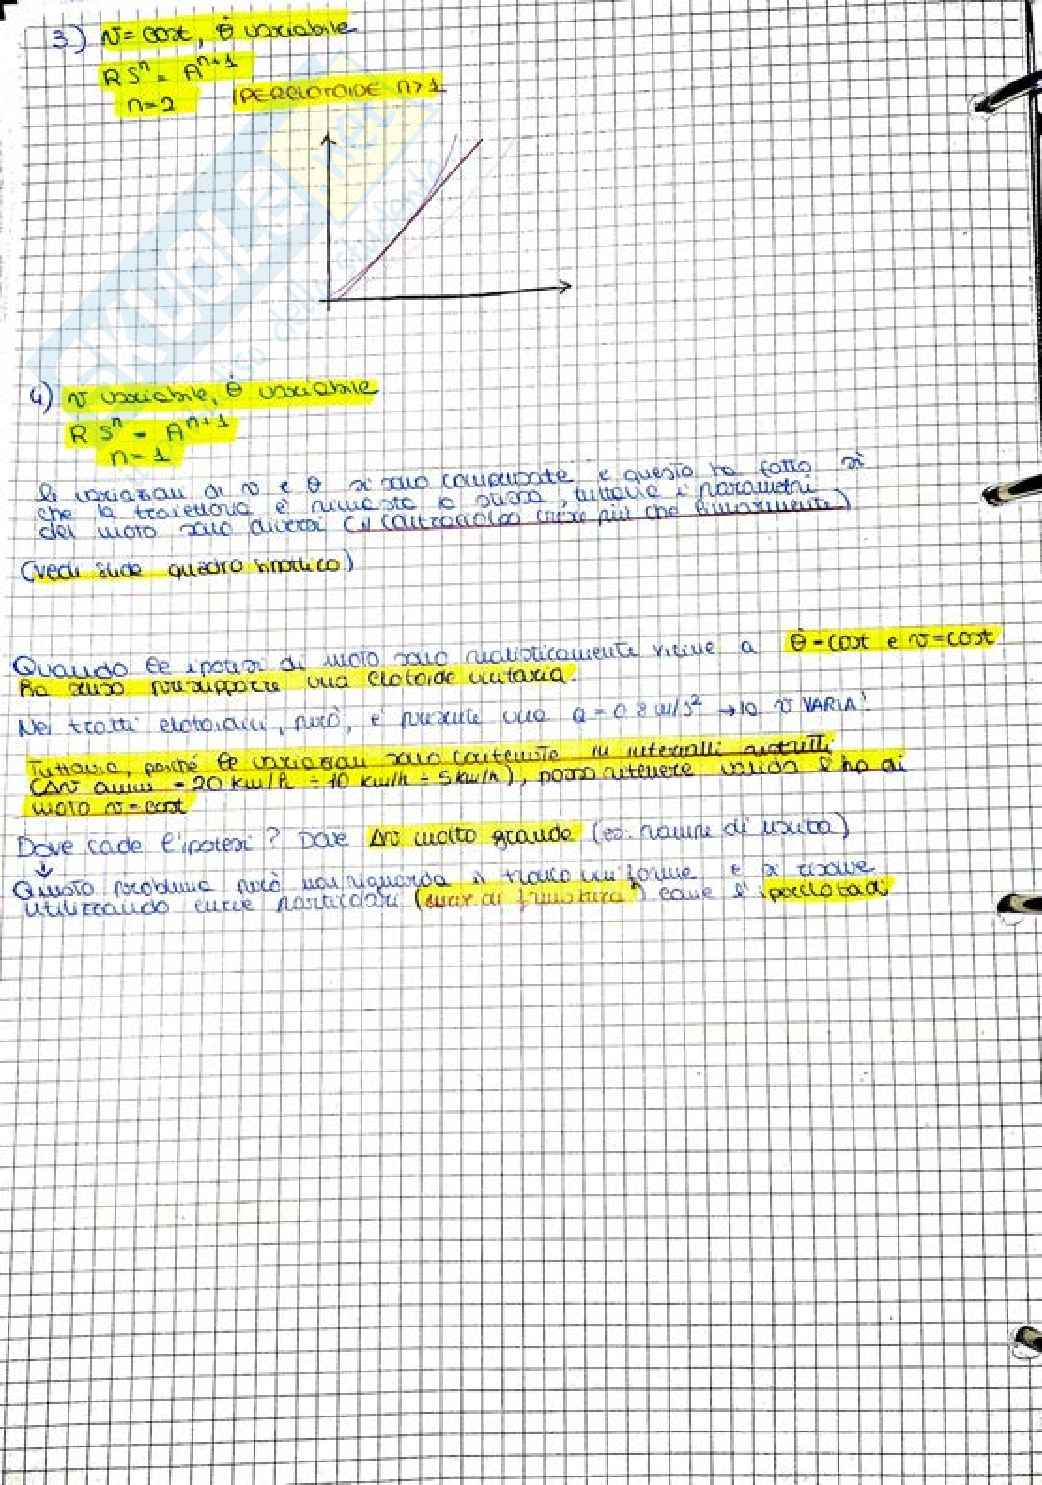 3) v = cost, θ̇ variabile
R Sⁿ = Aⁿ⁺¹
n=2 IPERCLOTOIDE n>1
SKUOLA.net
4) v variabile, θ̇ variabile
R Sⁿ = Aⁿ⁺¹
n=1
le variazioni di v e θ̇ si sono compensate e questo ha fatto sì
che la traiettoria è rimasta la stessa, tuttavia i parametri
del moto sono diversi (il contraccolpo cresce più che linearmente)
(vedi slide quadro sinottico)
Quando le ipotesi di moto sono realisticamente vicine a θ̇ = cost e v = cost
ha senso presupporre una clotoide unitaria.
Nei tratti clotoidici, però, è presente una a = 0.8 m/s² → la v VARIA!
Tuttavia, poiché le variazioni sono contenute in intervalli ristretti
(Δv amm = 20 km/h ÷ 10 km/h ÷ 5 km/h), posso ritenere valida l'hp di
moto v = cost
Dove cade l'ipotesi? Dove Δv molto grande (es. rampe di uscita)
↓
Questo problema però non riguarda il tracciato uniforme e si risolve
utilizzando curve particolari (curve di frenatura) come l'ipoclotoide